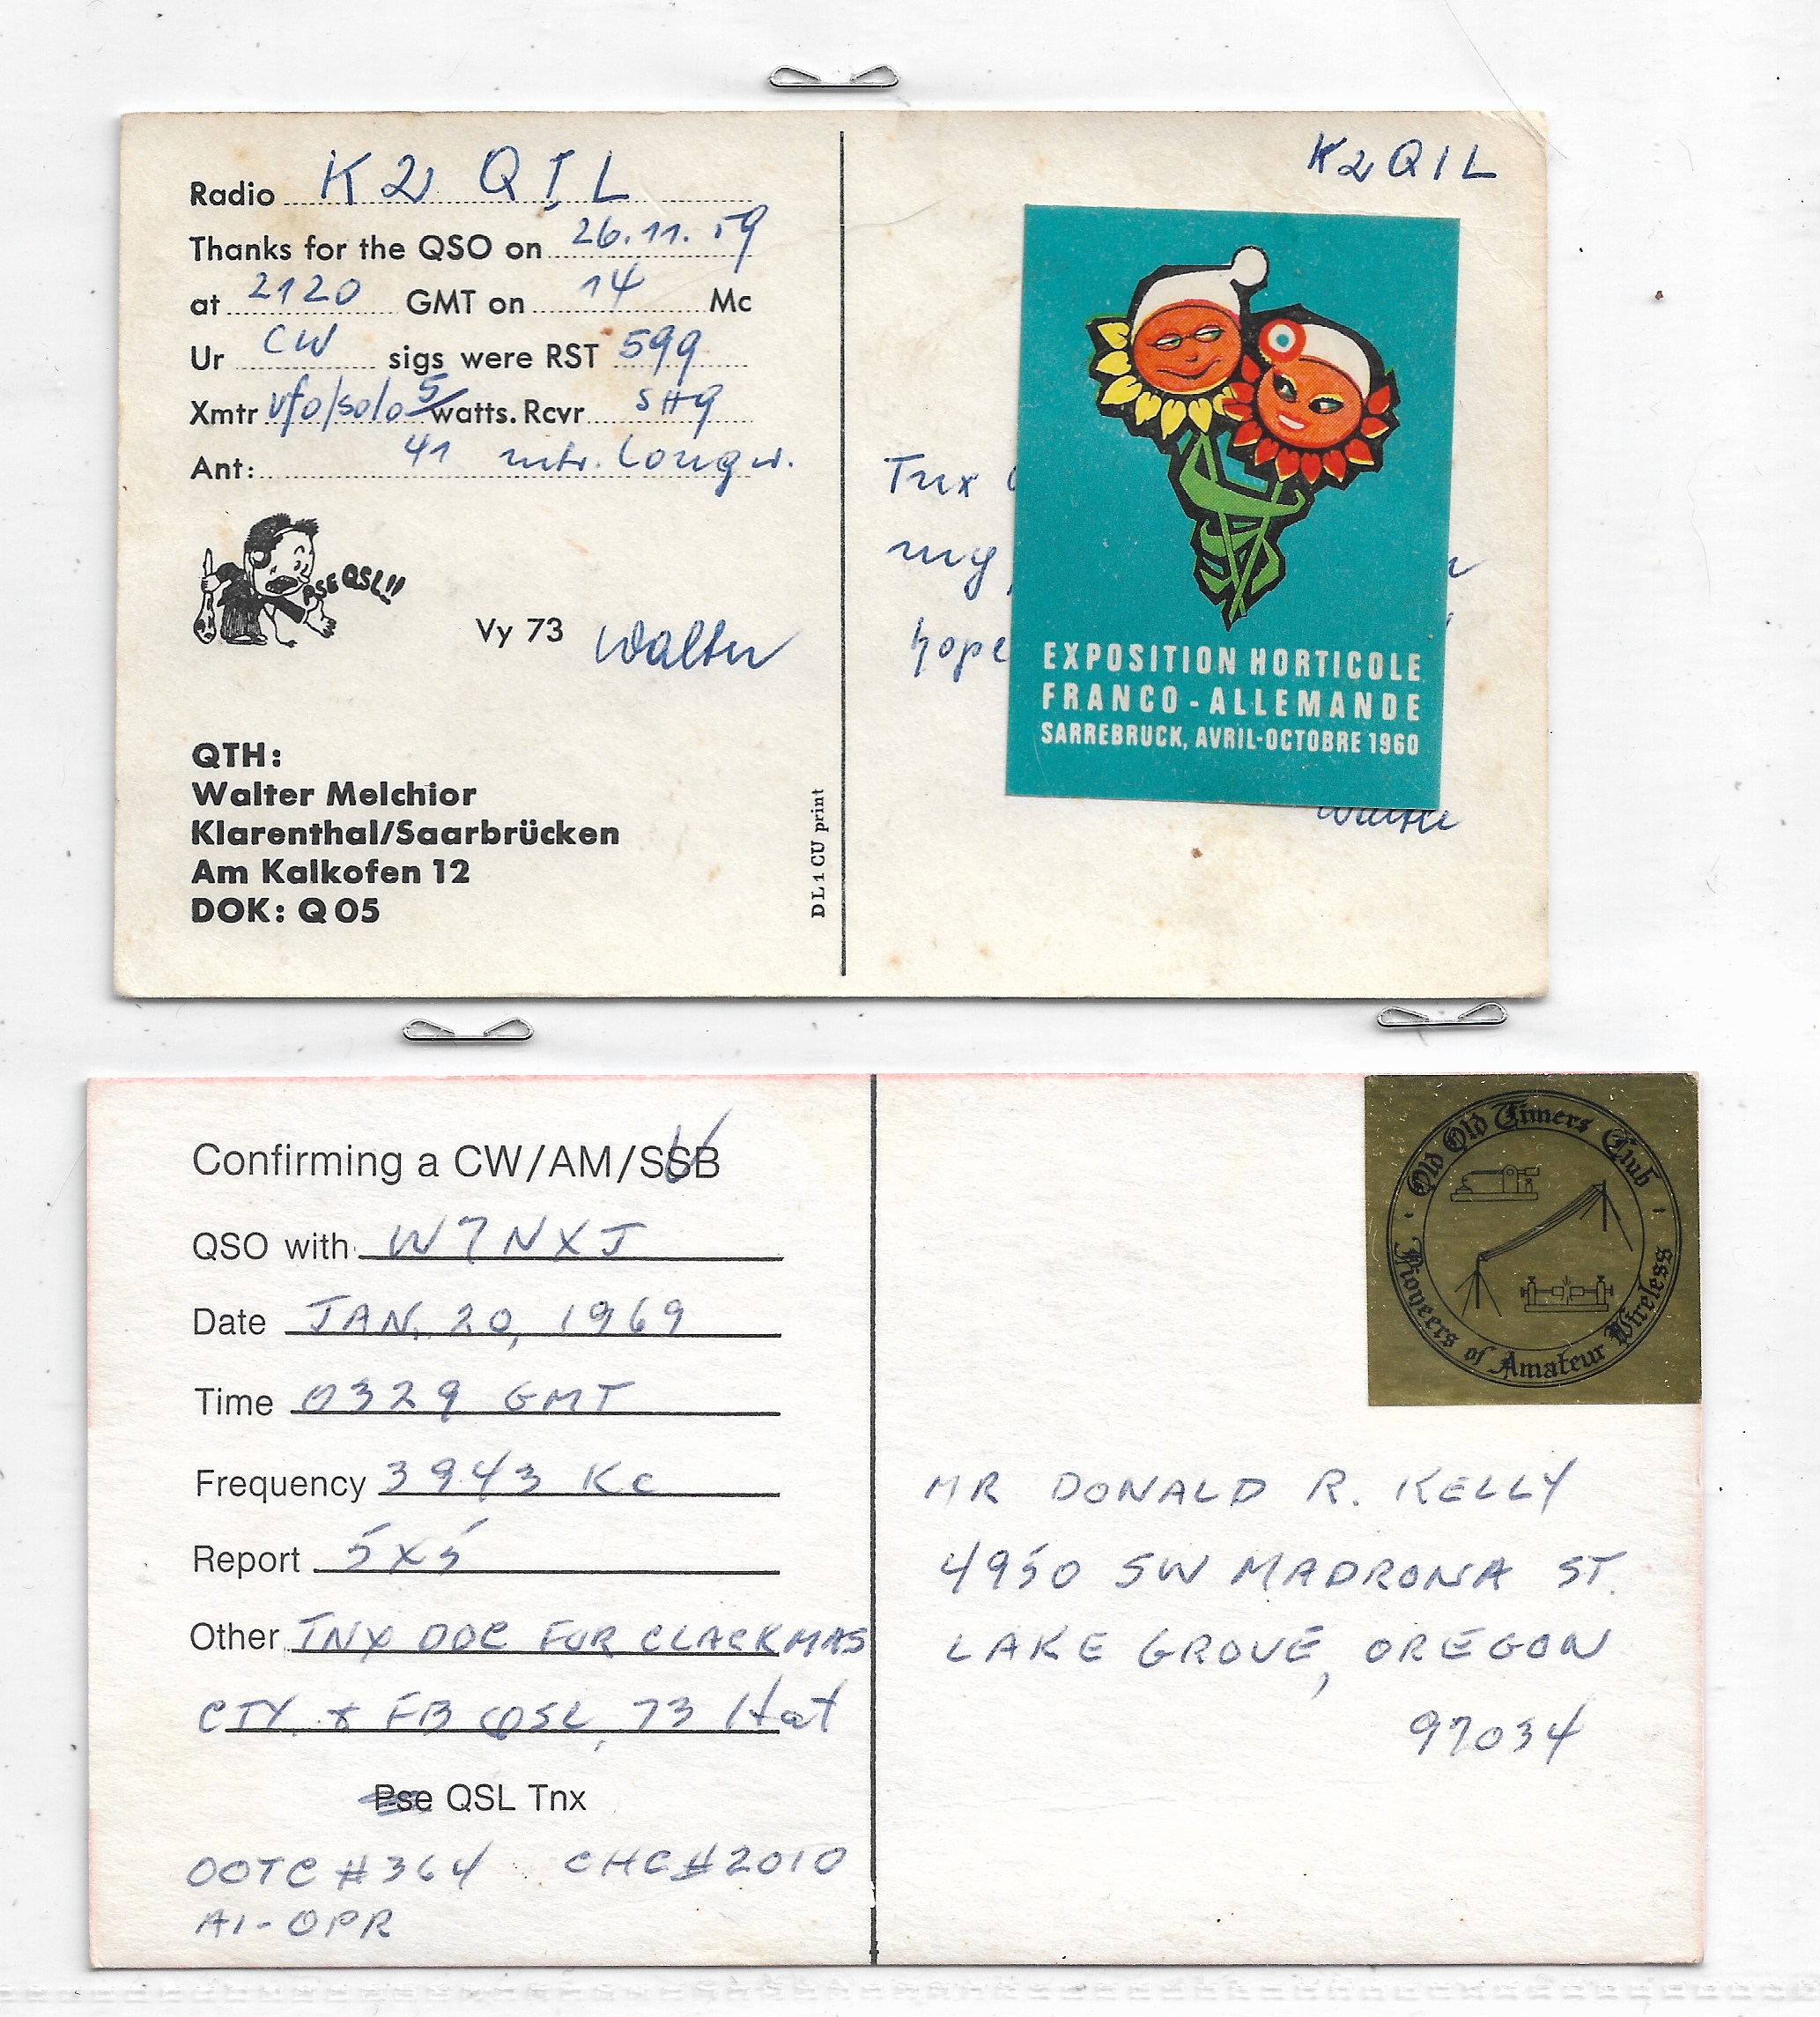 Radio K2 QIL
Thanks for the QSO on 26.11.59
at 2120 GMT on 14 Mc
Ur CW sigs were RST 599
Xmtr vfo/solo 5 watts. Rcvr SH9
Ant: 41 mtr. Longw.
PSE QSL!!
Vy 73 Walter
QTH:
Walter Melchior
Klarenthal/Saarbrücken
Am Kalkofen 12
DOK: Q 05
DL1CU print
K2QIL
Tnx
my
hope
EXPOSITION HORTICOLE
FRANCO-ALLEMANDE
SARREBRUCK, AVRIL-OCTOBRE 1960
Walter
Confirming a CW/AM/SSB
QSO with W7NXJ
Date JAN. 20, 1969
Time 0329 GMT
Frequency 3943 Kc
Report 5X5
Other TNX DOC FUR CLACKMAS
CTY. & FB QSL, 73 Hat
Pse QSL Tnx
OOTC #364 CHC#2010
A1-OPR
Old Old Timers Club
Pioneers of Amateur Wireless
MR DONALD R. KELLY
4950 SW MADRONA ST.
LAKE GROVE, OREGON
97034